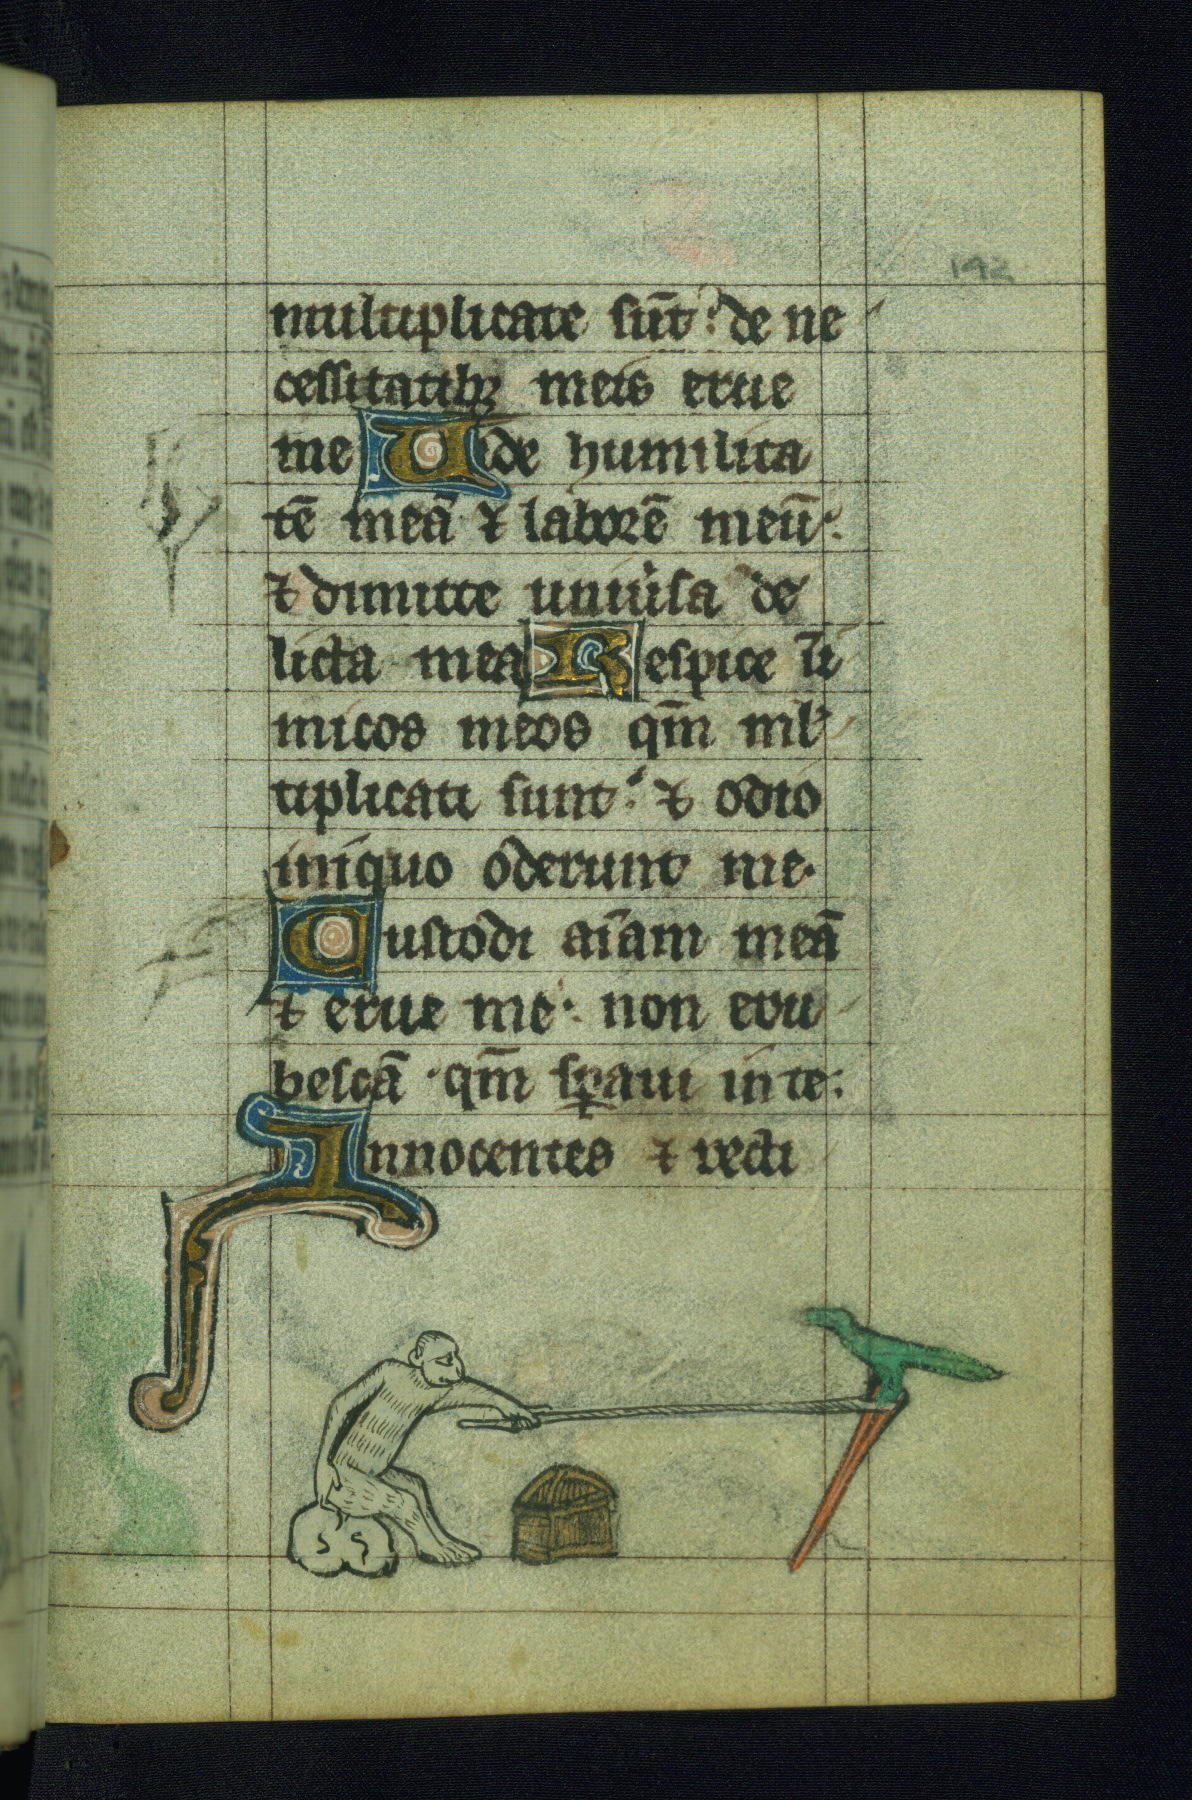 192
multiplicate su̅t: de ne
cessitatibꝫ meis erue
me Uide humilita
te̅ mea̅ ⁊ labore̅ meu̅:
⁊ dimitte uniu͛sa de
licta mea Respice i̅i
micos meos qm̅ ml̾
tiplicati sunt: ⁊ odio
iniquo oderunt me·
Custodi ai̅am mea̅
⁊ erue me· non eru
besca̅ · qm̅ sꝑaui in te:
Innocentes ⁊ recti